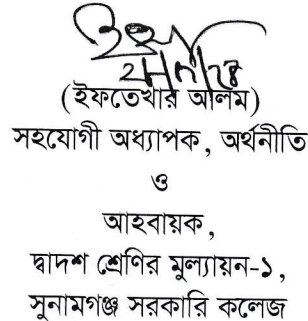 (ইফতেখার আলম)
সহযোগী অধ্যাপক, অর্থনীতি
ও
আহবায়ক,
দ্বাদশ শ্রেণির মুল্যায়ন-১,
সুনামগঞ্জ সরকারি কলেজ